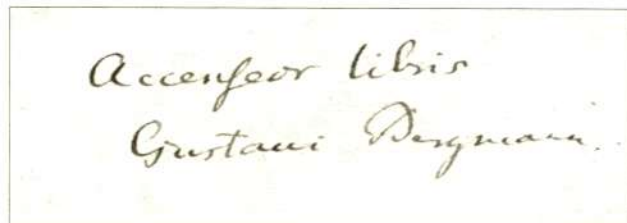 Accenseor libris
Gustaui Bergmann.